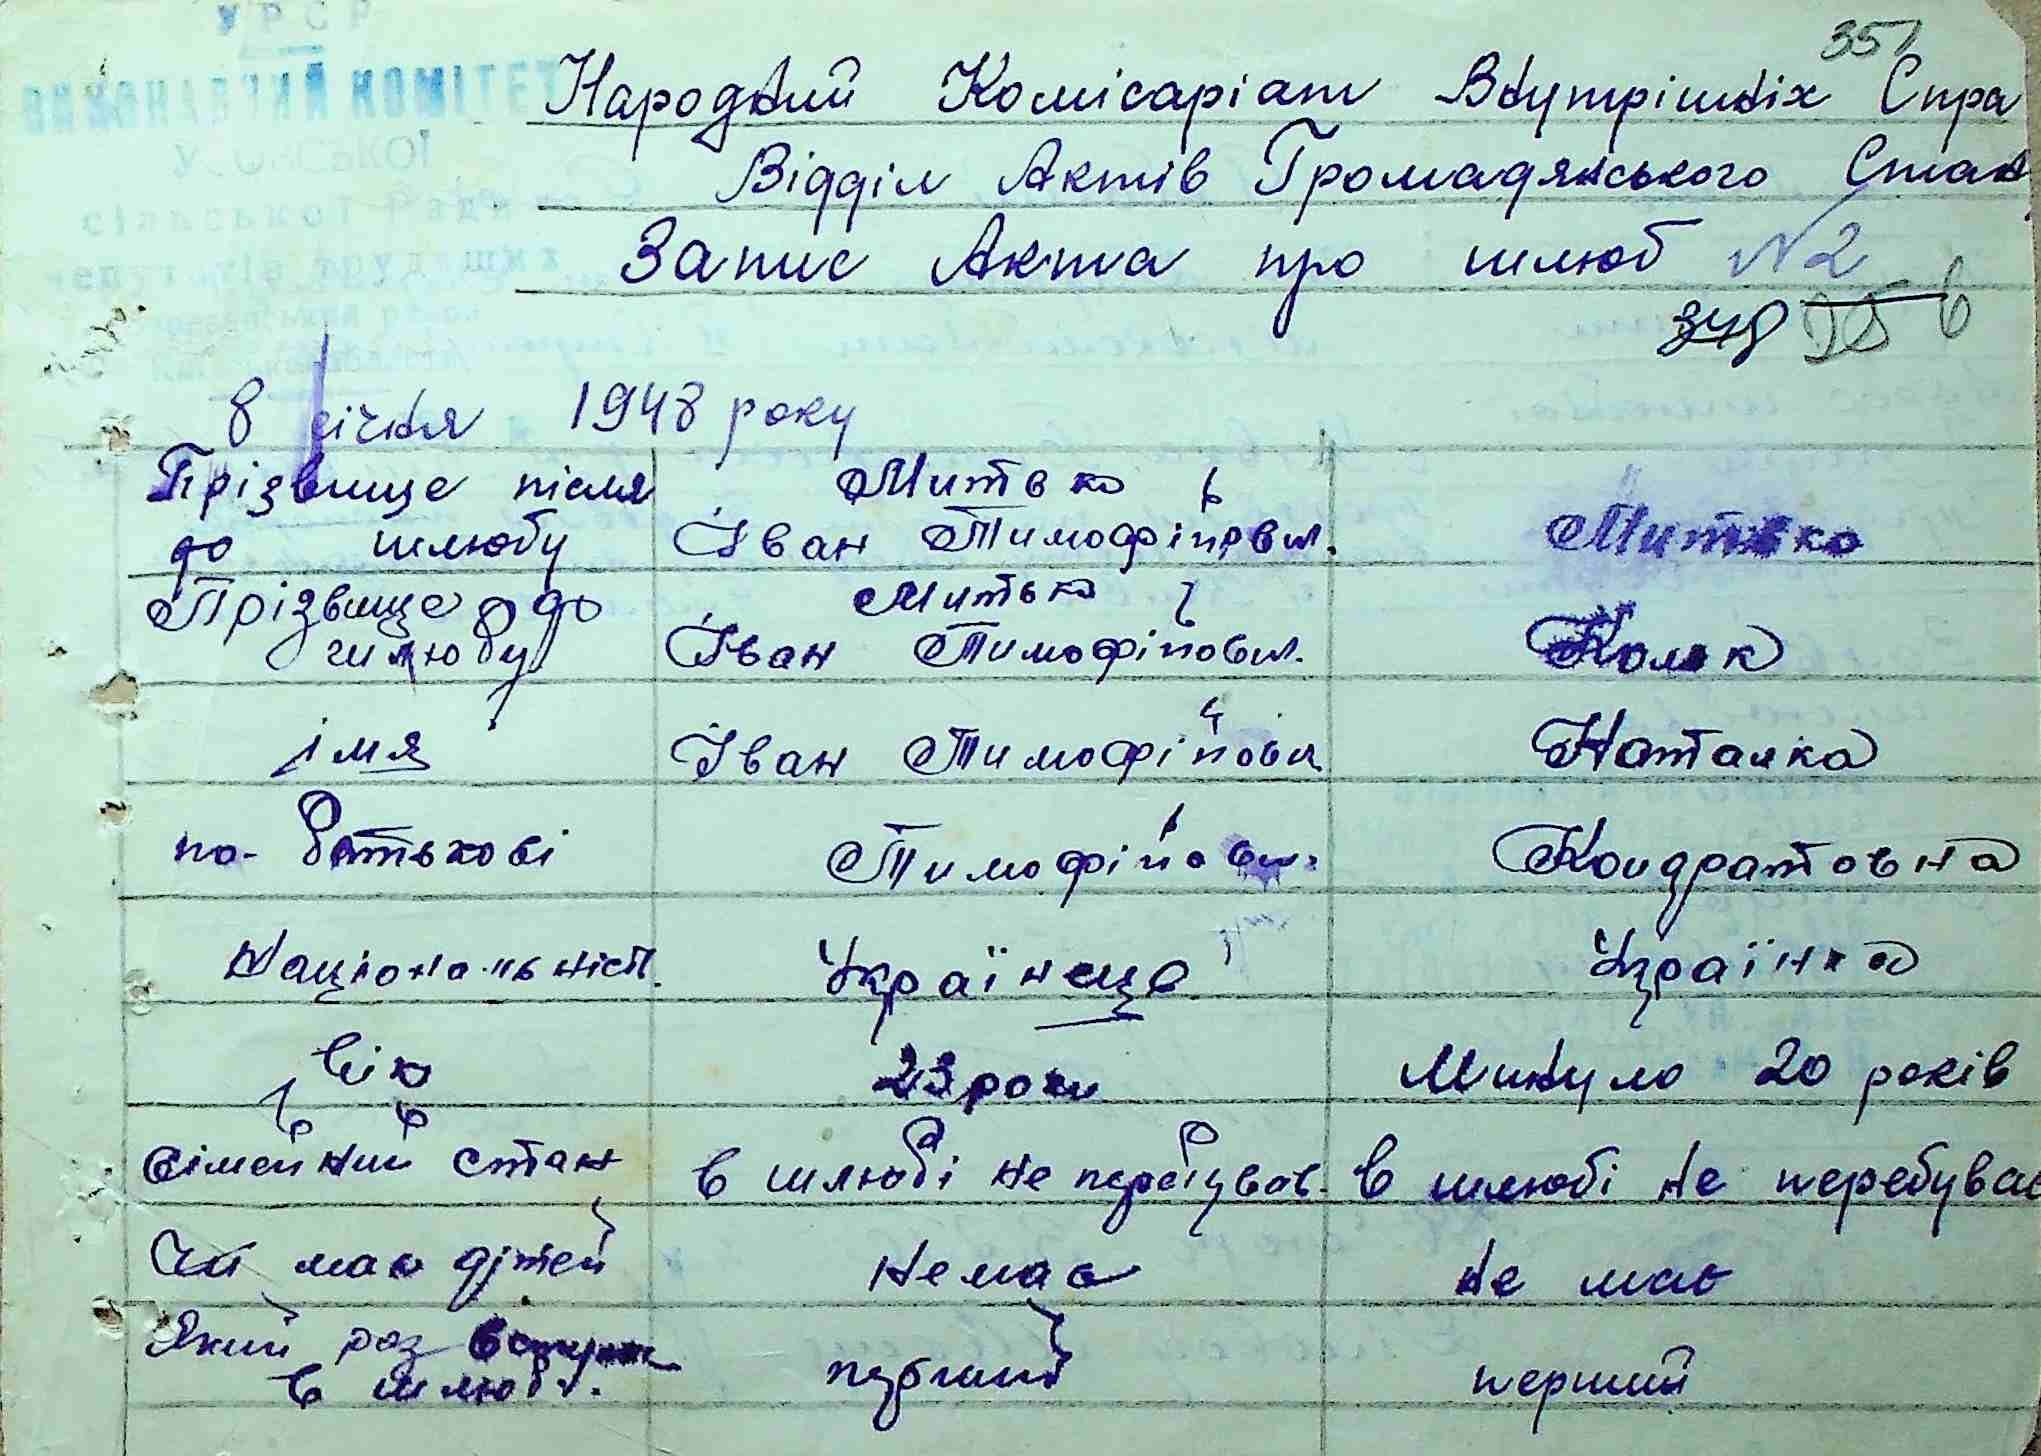 УРСР
ВИКОНАВЧИЙ КОМІТЕТ
сільської Ради
депутатів трудящих
351
Народний Комісаріат Внутрішніх Спра
Відділ Актів Громадянського Стан
Запис Акта про шлюб №2
8 січня 1948 року
Прізвище після Митько
до шлюбу Іван Тимофійович. Митько
Прізвище до Митько
шлюбу Іван Тимофійович.
імя Іван Тимофійович Наталка
по-батькові Тимофійович. Кондратовна
Національніст. Українець Українка
Вік 23 роки Минуло 20 років
Сімейний стан в шлюбі не перебував. в шлюбі не перебувал
Чи має дітей Немає не має
Який раз вступає перший перший
в шлюбі.